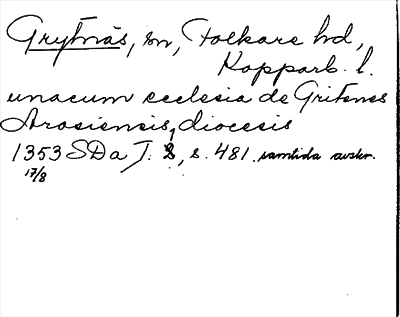 Grytnäs, sn, Folkare hd,
Kopparb. l.
unacum ecclesia de Gritenes
Arosiensis, diocesis
1353 SDa J. 8, s. 481. samtida avskr.
17/8